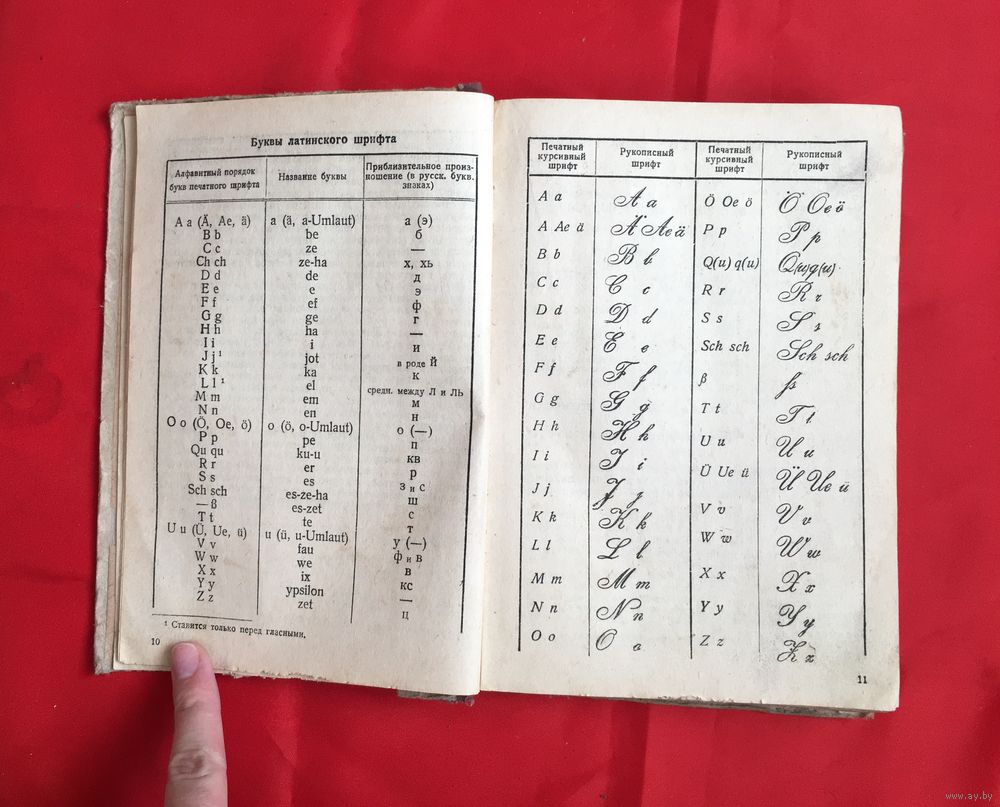 Буквы латинского шрифта
Алфавитный порядок букв печатного шрифта | Название буквы | Приблизительное произношение (в русск. букв. знаках)
A a (Ä, Ae, ä) a (ä, a-Umlaut) а (э)
B b be б
C c ze —
Ch ch ze-ha х, хь
D d de д
E e e э
F f ef ф
G g ge г
H h ha —
I i i и
J j ¹ jot в роде Й
K k ka к
L l ¹ el средн. между Л и ЛЬ
M m em м
N n en н
O o (Ö, Oe, ö) o (ö, o-Umlaut) о (—)
P p pe п
Qu qu ku-u кв
R r er р
S s es з и с
Sch sch es-ze-ha ш
— ß es-zet с
T t te т
U u (Ü, Ue, ü) u (ü, u-Umlaut) у (—)
V v fau ф и в
W w we в
X x ix кс
Y y ypsilon —
Z z zet ц
¹ Ставится только перед гласными.
10
Печатный курсивный шрифт | Рукописный шрифт | Печатный курсивный шрифт | Рукописный шрифт
A a A a Ö Oe ö Ö Oe ö
A Ae ä Ä Ae ä P p P p
B b B b Q(u) q(u) Q(u) q(u)
C c C c R r R r
D d D d S s S s
E e E e Sch sch Sch sch
F f F f ß ß
G g G g T t T t
H h H h U u U u
I i I i Ü Ue ü Ü Ue ü
J j J j V v V v
K k K k W w W w
L l L l X x X x
M m M m Y y Y y
N n N n Z z Z z
O o O o
11
www.ay.by